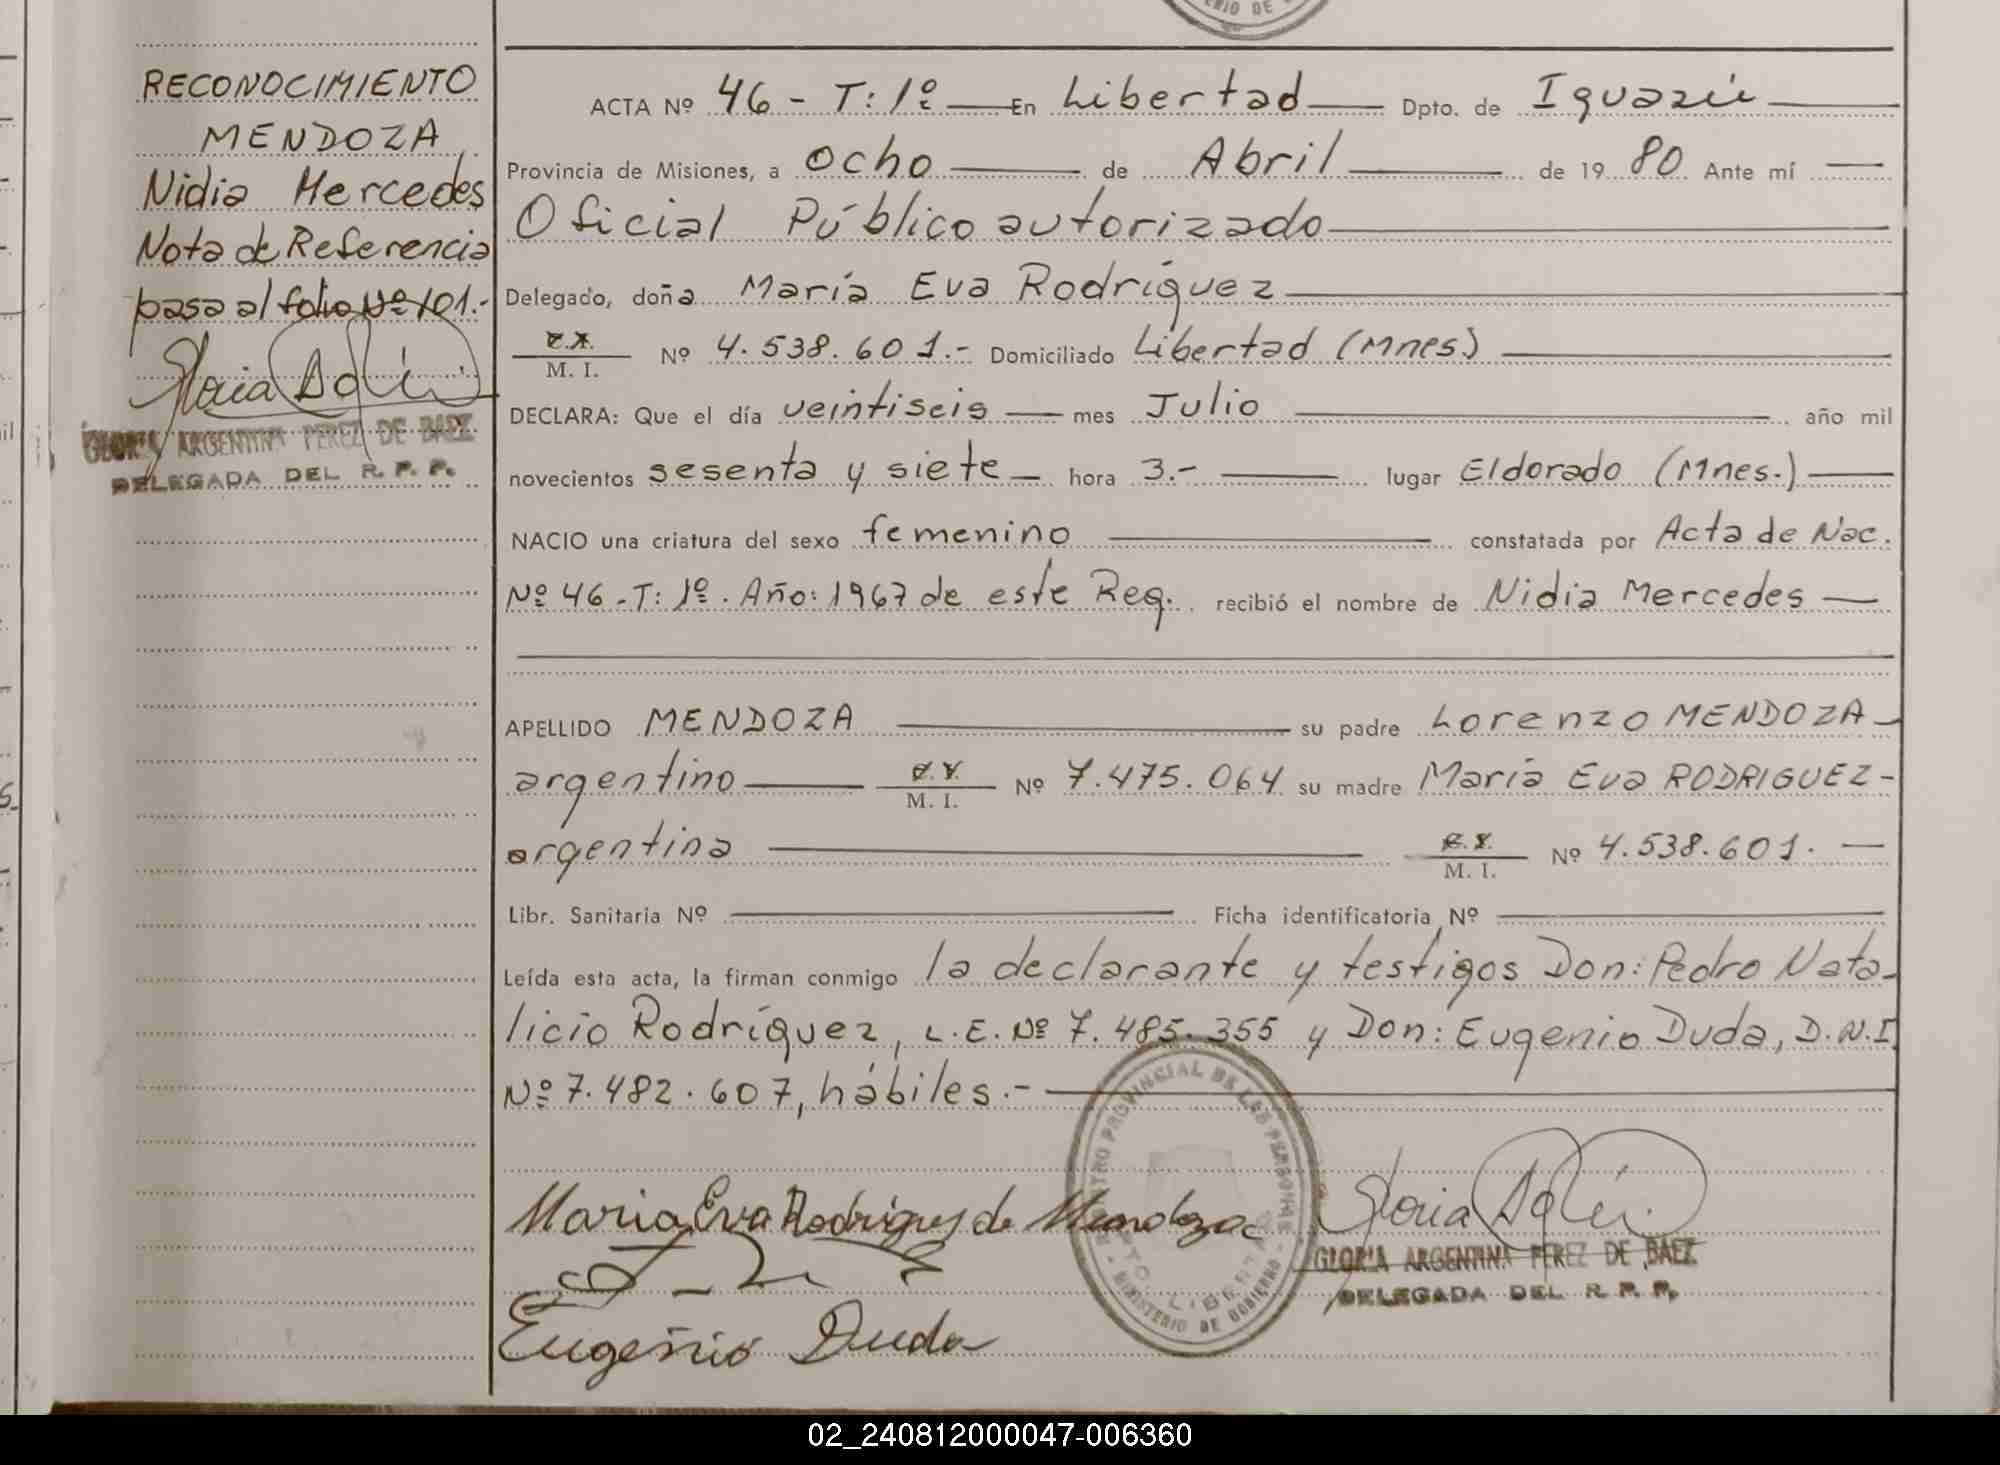 RECONOCIMIENTO
MENDOZA
Nidia Mercedes
Nota de Referencia
pasa al folio Nº 101.-
GLORIA ARGENTINA PEREZ DE BAEZ
DELEGADA DEL R. P. P.
ACTA Nº 46 - T: 1º En Libertad Dpto. de Iguazú
Provincia de Misiones, a ocho de Abril de 1980 Ante mí
Oficial Público autorizado
Delegado, doña María Eva Rodríguez
M. I. Nº 4.538.601.- Domiciliado Libertad (Mnes.)
DECLARA: Que el día veintiseis mes Julio año mil
novecientos sesenta y siete hora 3.- lugar Eldorado (Mnes.)
NACIO una criatura del sexo femenino constatada por Acta de Nac.
Nº 46 - T: 1º. Año: 1967 de este Reg. recibió el nombre de Nidia Mercedes
APELLIDO MENDOZA su padre Lorenzo MENDOZA
argentino M. I. Nº 7.475.064 su madre María Eva RODRIGUEZ-
argentina M. I. Nº 4.538.601.
Libr. Sanitaria Nº Ficha identificatoria Nº
Leída esta acta, la firman conmigo la declarante y testigos Don: Pedro Nata-
licio Rodríguez, L.E. Nº 7.485.355 y Don: Eugenio Duda, D.N.I
Nº 7.482.607, hábiles.-
REGISTRO PROVINCIAL DE LAS PERSONAS
MINISTERIO DE GOBIERNO
Maria Eva Rodrigues de Mendoza
GLORIA ARGENTINA PEREZ DE BAEZ
DELEGADA DEL R. P. P.
Eugenio Duda
02_240812000047-006360